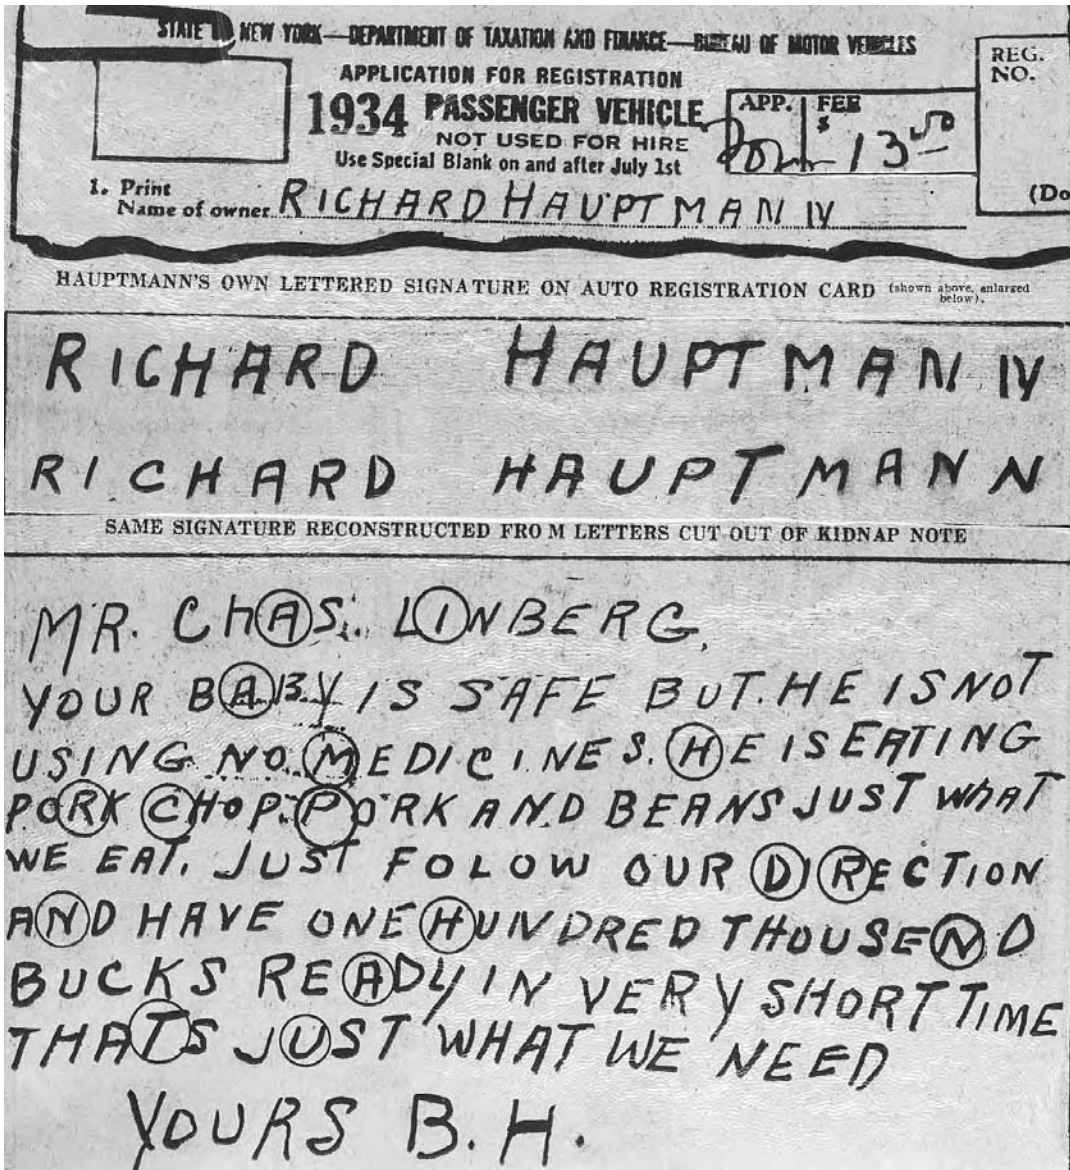 STATE OF NEW YORK—DEPARTMENT OF TAXATION AND FINANCE—BUREAU OF MOTOR VEHICLES
APPLICATION FOR REGISTRATION
1934 PASSENGER VEHICLE
NOT USED FOR HIRE
Use Special Blank on and after July 1st
APP. FEE
$ 13 50
REG.
NO.
(Do
1. Print
Name of owner RICHARD HAUPTMANN
HAUPTMANN'S OWN LETTERED SIGNATURE ON AUTO REGISTRATION CARD (shown above, enlarged below).
RICHARD HAUPTMANN
RICHARD HAUPTMANN
SAME SIGNATURE RECONSTRUCTED FROM LETTERS CUT OUT OF KIDNAP NOTE
MR. ChAS. LINBERG,
YOUR BABY IS SAFE BUT. HE IS NOT
USING NO MEDICINES. HE IS EATING
PORK CHOP. PORK AND BEANS JUST WhAT
WE EAT. JUST FOLOW OUR DIRECTION
AND HAVE ONE HUNDRED THOUSEND
BUCKS READY IN VERY SHORT TIME
THATS JUST WHAT WE NEED
YOURS B. H.